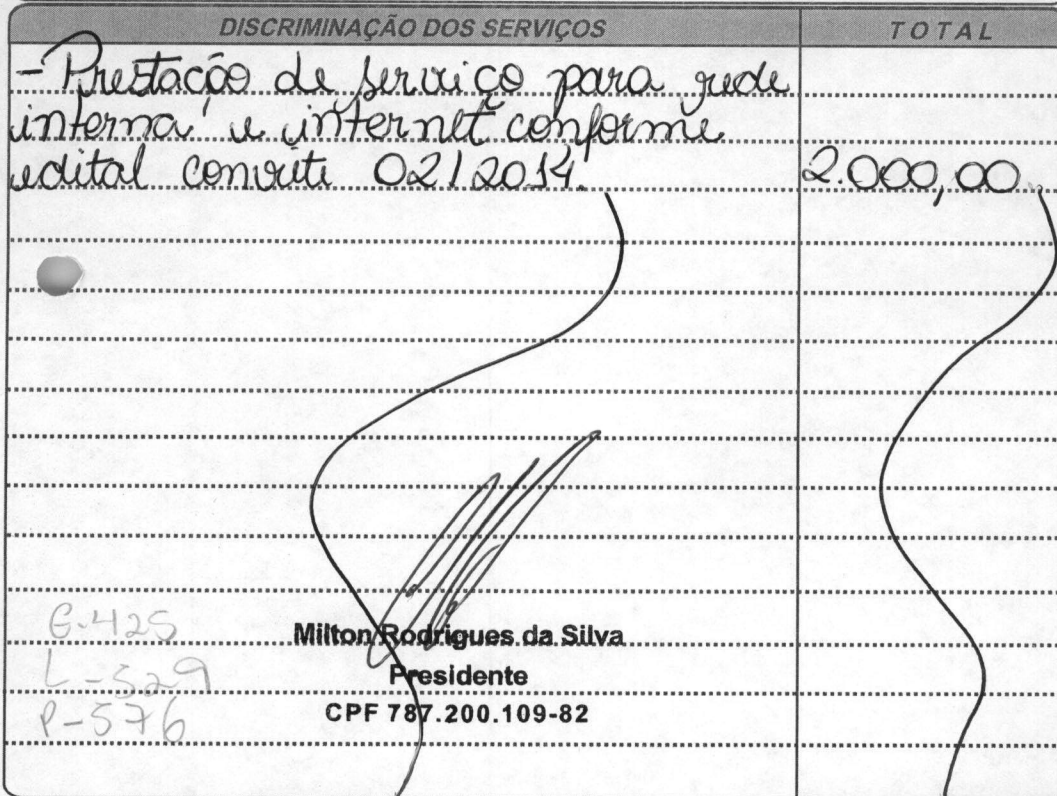 DISCRIMINAÇÃO DOS SERVIÇOS TOTAL
- Prestação de serviço para rede
interna e internet conforme
edital convite 02/2014. 2.000,00
E-425
L-529
P-576
Milton Rodrigues da Silva
Presidente
CPF 787.200.109-82